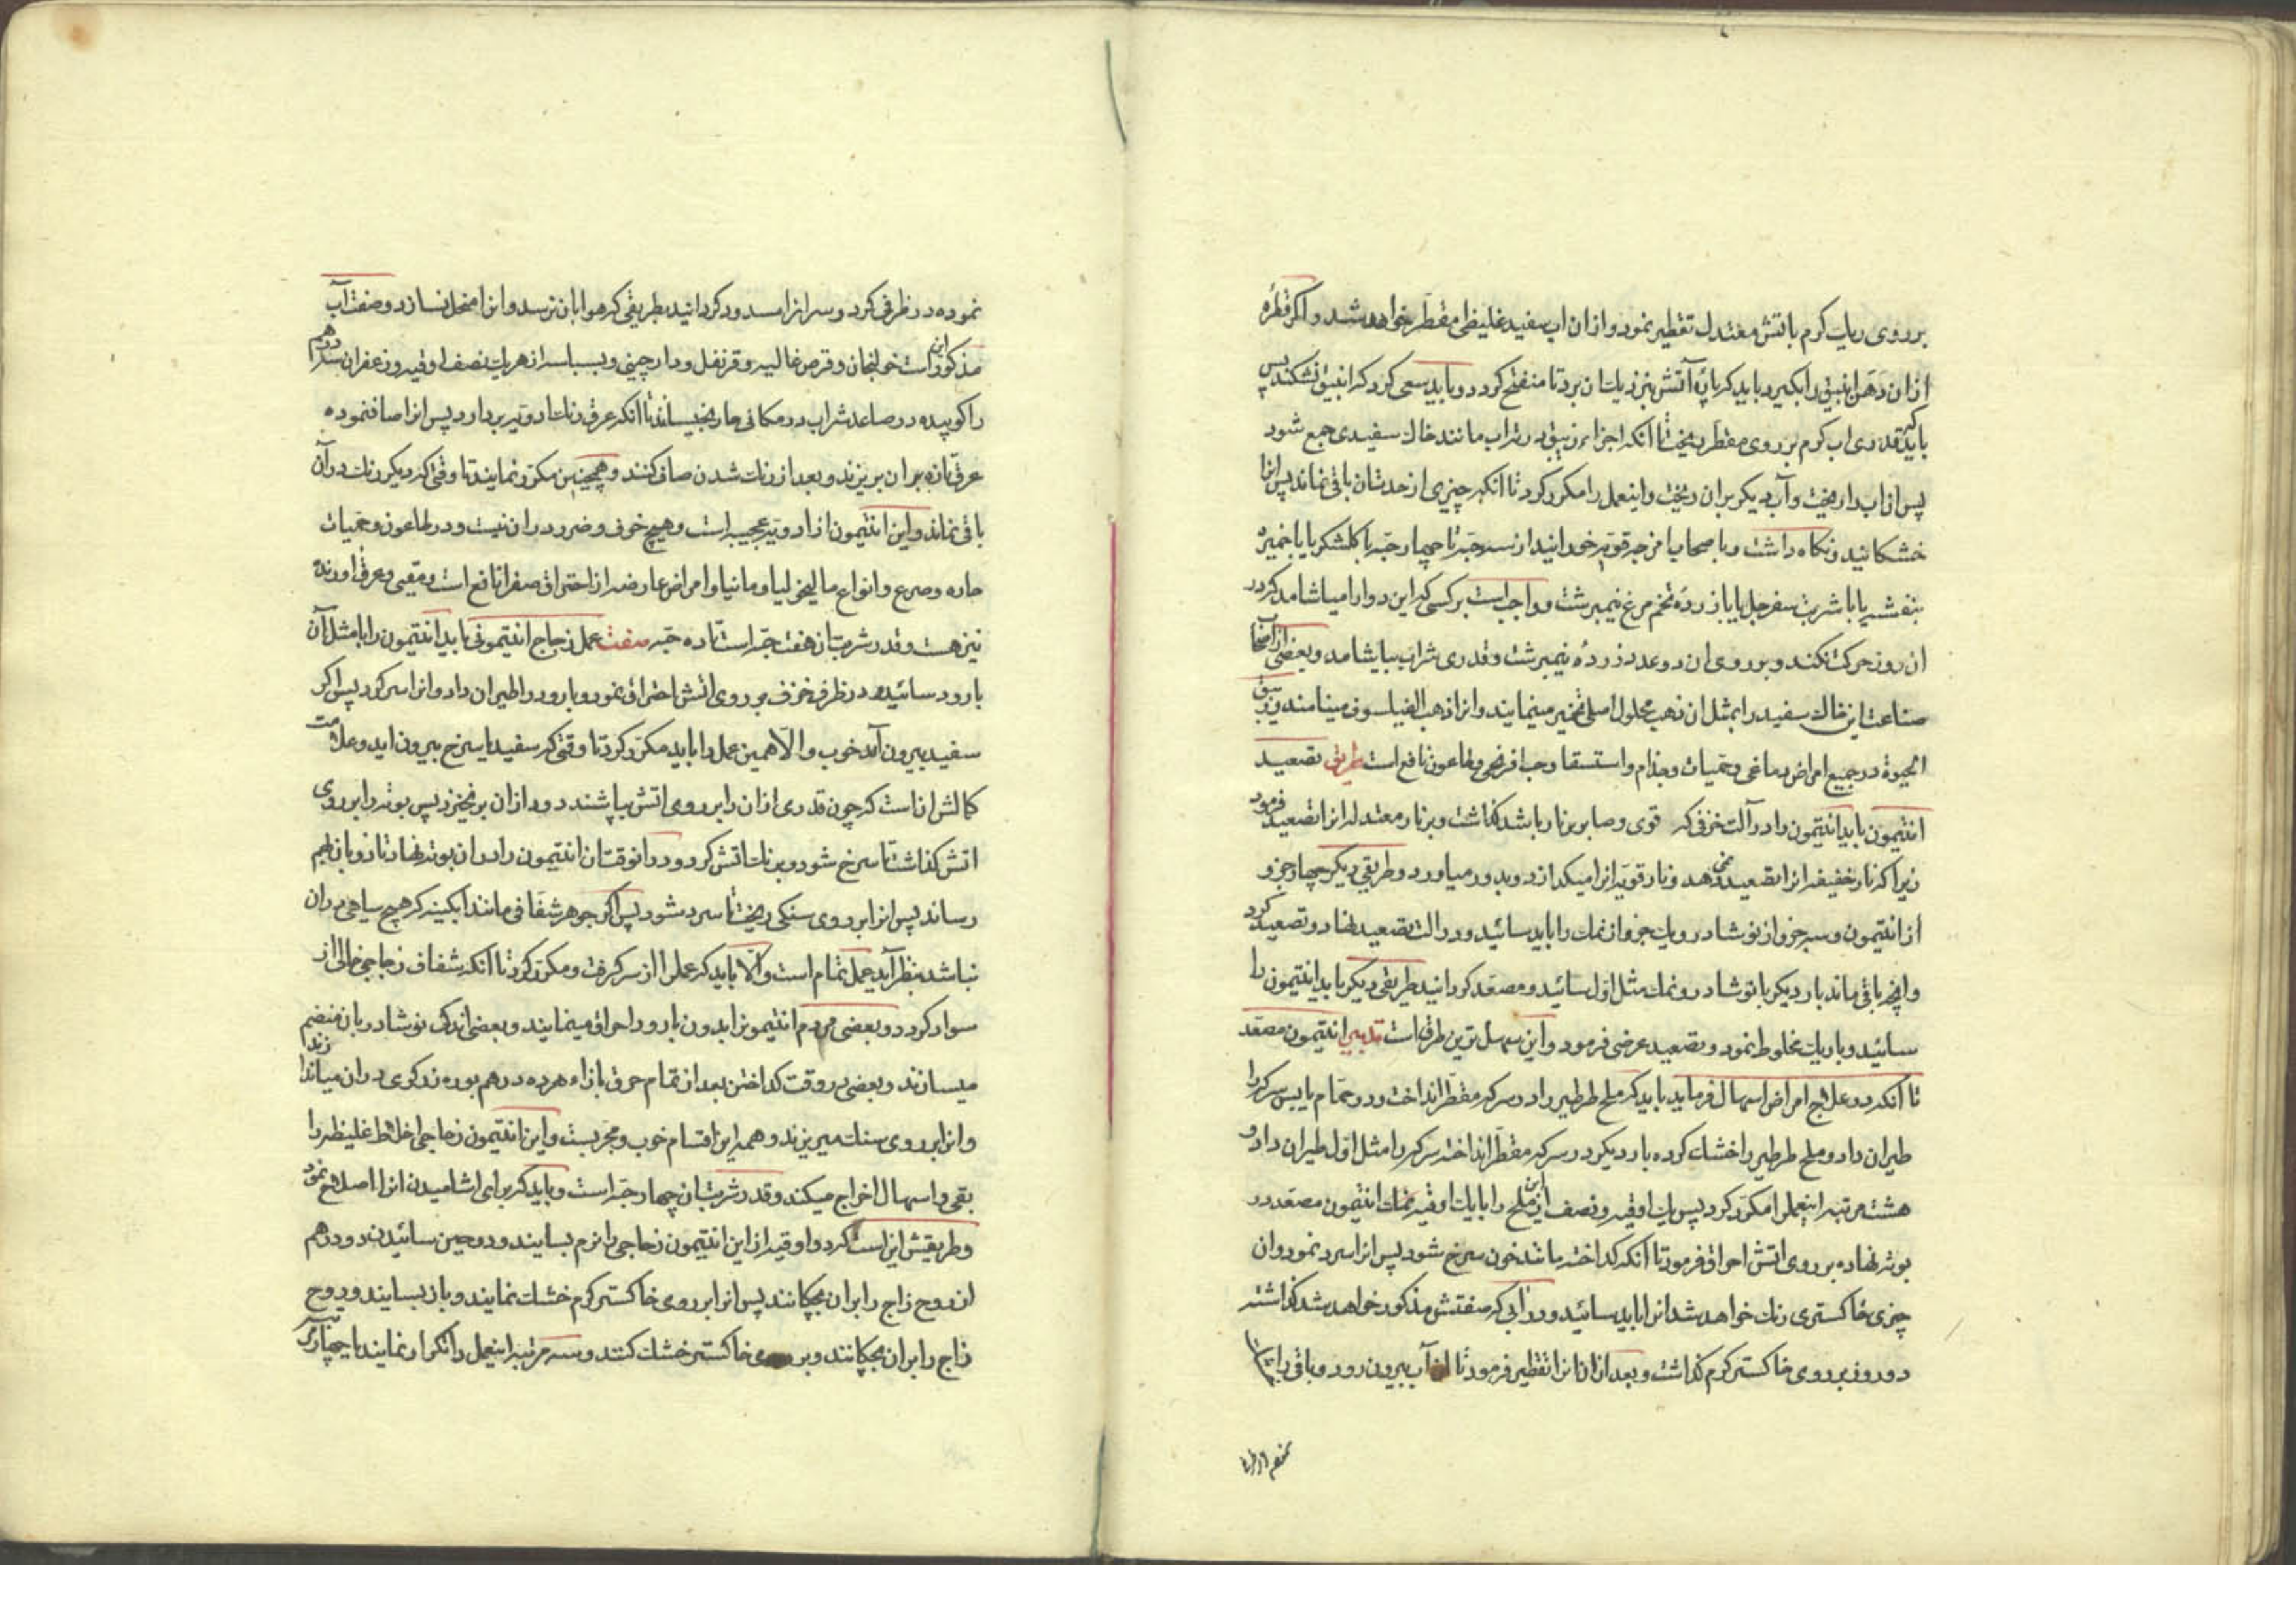 بر روی ریک کرم باتش معتدل تقطیر نمود و از ان اب سفید غلیظی مقطر خواهد شد و اکر قطره
از ان دهن انبیق را بکیرد باید که پارۀ آتش بنزدیک ان برد تا منفتح کردد و باید سعی کرد که انبیق نشکند پس
باید که قدری اب کرم بر روی مقطر ریخت تا انکه اجزاء زیبق در ته اب مانند خاک سفیدی جمع شود
پس از اب را ریخت و آب دیکر بران ریخت و اینعمل را مکرر کرد تا انکه چیزی از حدت ان باقی نماند پس انرا
خشکانید و نکاه داشت و با صحاب امزجه قویه خورانید از سه حبه تا چهار حبه با کلشکر یا با خمیره
بنفشه یا با شربت سفرجل یا با زردۀ تخم مرغ نیمبرشت و واجب است بر کسی که این دوا را میاشامد که در
ان روز حرکت نکند و بر روی ان دو عدد زردۀ نیمبرشت و قدری شراب بیاشامد و بعضی از اصحاب
صناعت این خاک سفید را بمثل ان ذهب محلول اصلی تخمیر مینمایند و انرا ذهب الفیلسوف مینامند و زیبق
الحیوة در جمیع امراض دماغی و حمیات و جذام و استسقا و حب افرنجی و طاعون نافع است طریق تصعید
انتیمون باید انتیمون را در آلت خزفی که قوی و صابر بنار باشد کذاشت و بر نار معتدله انرا تصعید فرمود
زیرا که نار خفیفه انرا تصعید نمی دهد و نار قویه انرا میکدازد و بدور میاورد و طریقی دیکر چهار جزو
از انتیمون و سه جزو از نوشادر و یک جزو از نمک را باید سائید و در الت تصعید نهاد و تصعید کرد
و اینچه باقی ماند بار دیکر با نوشادر و نمک مثل اول سائید و مصعد کردانید طریقی دیکر باید انتیمون را
سائید و با ریک مخلوط نمود و تصعید عرضی فرمود و این سهل ترین طرق است تدبیر انتیمون مصعد
تا آنکه در علاج امراض اسهال فرماید باید که ملح طرطیر را در سرکه مقطر انداخت و در حمام یابس سرکه را
طیران داد و ملح طرطیر را خشک کرده بار دیکر در سرکه مقطر انداخته سرکه را مثل اول طیران داد و
هشت مرتبه اینعمل را مکرر کرد پس یک اوقیه و نصف این ملح را با یک اوقیه نمک انتیمون مصعد در
بوته نهاده بر روی اتش احراق فرمود تا آنکه کداخته مانند خون سرخ شود پس انرا سرد نمود و ان
چیزی خاکستری رنک خواهد شد انرا باید سائید و در آبی که صفتش مذکور خواهد شد کذاشته
دو روز بر روی خاکستر کرم کذاشت و بعد از ان انرا تقطیر فرمود تا ان آب بیرون رود و باقی را
نموده در ظرفی کرد و سر انرا مسدود کردانید بطریقی که هوا بان نرسد و انرا منحل نسازد و صفت آب
مذکور این است خولنجان و قرص غالیه و قرنفل و دارچینی و بسباسه از هریک نصف اوقیه و زعفران سه درهم
را کوبیده در صاعد شراب در مکانی حار بخیساند تا انکه عرق رنک ادویه بردارد پس انرا صاف نموده
عرق تازه بر ان بریزند و بعد از رنک شدن صاف کنند و همچنین مکرر نمایند تا وقتی که دیکر رنک در آن
باقی نماند و این انتیمون از ادویه عجیبه است و هیچ خوف و ضرر در ان نیست و در طاعون و حمیات
حاره و صرع و انواع مالیخولیا و مانیا و امراض عارضه از احتراق صفرا نافع است و مقیی و عرق اورنده
نیز هست و قدر شربت ان هفت حبه است تا ده حبه صفت عمل زجاج انتیمونی باید انتیمون را با مثل آن
بارود سائیده در ظرف خزف بر روی اتش احتراق نمود و بارود را طیران داد و انرا سرد کرد پس اکر
سفید بیرون آمد خوب و الا همین عمل را باید مکرر کرد تا وقتی که سفید یا سرخ بیرون اید و علامت
کمالش انست که چون قدری از ان را بر روی اتش بپاشند دود از ان بر نخیزد پس بوته را بر روی
اتش کذاشت تا سرخ شود و برنک اتش کردد و در انوقت ان انتیمون را در ان بوته نهاد تا ذوبان بهم
رساند پس انرا بر روی سنکی ریخت تا سرد شود پس اکر جوهر شفافی مانند ابکینه که هیچ سیاهی در ان
نباشد بنظر آید عمل تمام است و الا باید که عمل را از سر کرفت و مکرر کرد تا انکه شفاف زجاجی خالی از
سواد کردد و بعضی مردم انتیمون را بدون بارود احراق مینمایند و بعضی اندک نوشادر بان منضم
میسازند و بعضی در وقت کداختن بعد از تمام حرق بازاء هر ده درهم بوره زرکری در ان میاندازند
و انرا بر روی سنک میریزند و همه این اقسام خوب و مجربست و این انتیمون زجاجی اخلاط غلیظه را
بقی و اسهال اخراج میکند و قدر شربت ان چهار حبه است و باید که برای اشامیدن انرا اصلاح نمود
و طریقش این است که دو اوقیه از این انتیمون زجاجی را نرم بسایند و در حین سائیدن دو درهم
از روح زاج را بران بچکانند پس انرا بر روی خاکستر کرم خشک نمایند و باز بسایند و روح
زاج را بران بچکانند و بر روی خاکستر خشک کنند و سه مرتبه اینعمل را تکرار نمایند یا چهار مرتبه